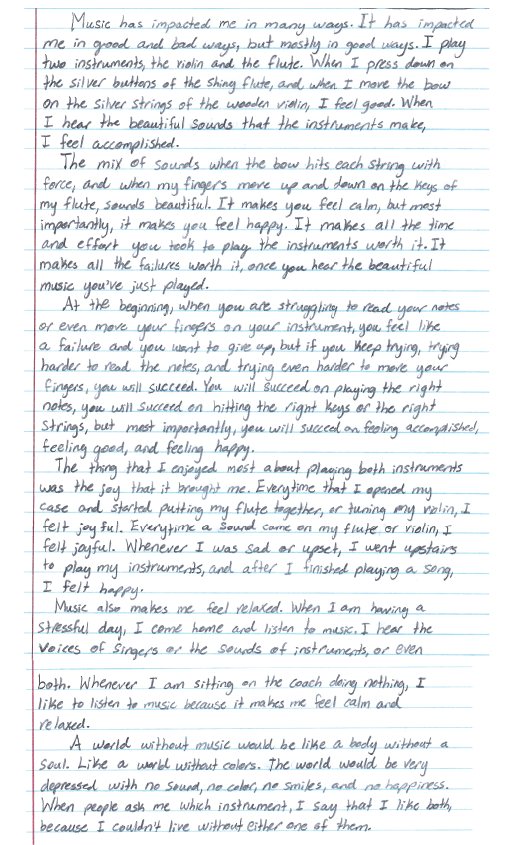 Music has impacted me in many ways. It has impacted
me in good and bad ways, but mostly in good ways. I play
two instruments, the violin and the flute. When I press down on
the silver buttons of the shiny flute, and when I move the bow
on the silver strings of the wooden violin, I feel good. When
I hear the beautiful sounds that the instruments make,
I feel accomplished.
The mix of sounds when the bow hits each string with
force, and when my fingers move up and down on the keys of
my flute, sounds beautiful. It makes you feel calm, but most
importantly, it makes you feel happy. It makes all the time
and effort you took to play the instruments worth it. It
makes all the failures worth it, once you hear the beautiful
music you've just played.
At the beginning, when you are struggling to read your notes
or even move your fingers on your instrument, you feel like
a failure and you want to give up, but if you keep trying, trying
harder to read the notes, and trying even harder to move your
fingers, you will succeed. You will succeed on playing the right
notes, you will succeed on hitting the right keys or the right
strings, but most importantly, you will succeed on feeling accomplished,
feeling good, and feeling happy.
The thing that I enjoyed most about playing both instruments
was the joy that it brought me. Everytime that I opened my
case and started putting my flute together, or tuning my violin, I
felt joyful. Everytime a sound came on my flute or violin, I
felt joyful. Whenever I was sad or upset, I went upstairs
to play my instruments, and after I finished playing a song,
I felt happy.
Music also makes me feel relaxed. When I am having a
stressful day, I come home and listen to music. I hear the
voices of singers or the sounds of instruments, or even
both. Whenever I am sitting on the coach doing nothing, I
like to listen to music because it makes me feel calm and
relaxed.
A world without music would be like a body without a
soul. Like a world without colors. The world would be very
depressed with no sound, no color, no smiles, and no happiness.
When people ask me which instrument, I say that I like both,
because I couldn't live without either one of them.